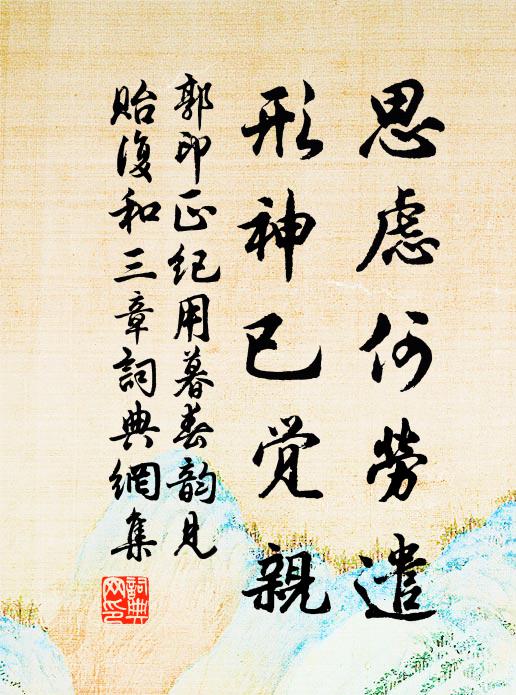 思慮何勞遣
形神已觉親
郭印正紀用暮春韵見
貽復和三章詞典網集
詞典网印